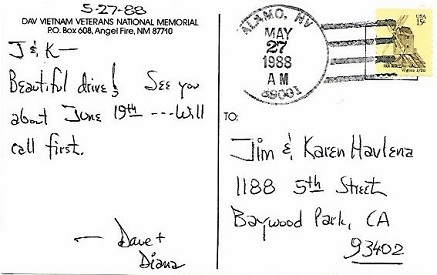 5-27-88
DAV VIETNAM VETERANS NATIONAL MEMORIAL
P.O. Box 608, Angel Fire, NM 87710
J & K —
Beautiful drive! See you
about June 19th --- Will
call first.
— Dave +
Diana
ALAMO, NV
MAY
27
1988
AM
89001
USA
15c
Virginia 1720
TO:
Jim & Karen Havlena
1188 5th Street
Baywood Park, CA
93402